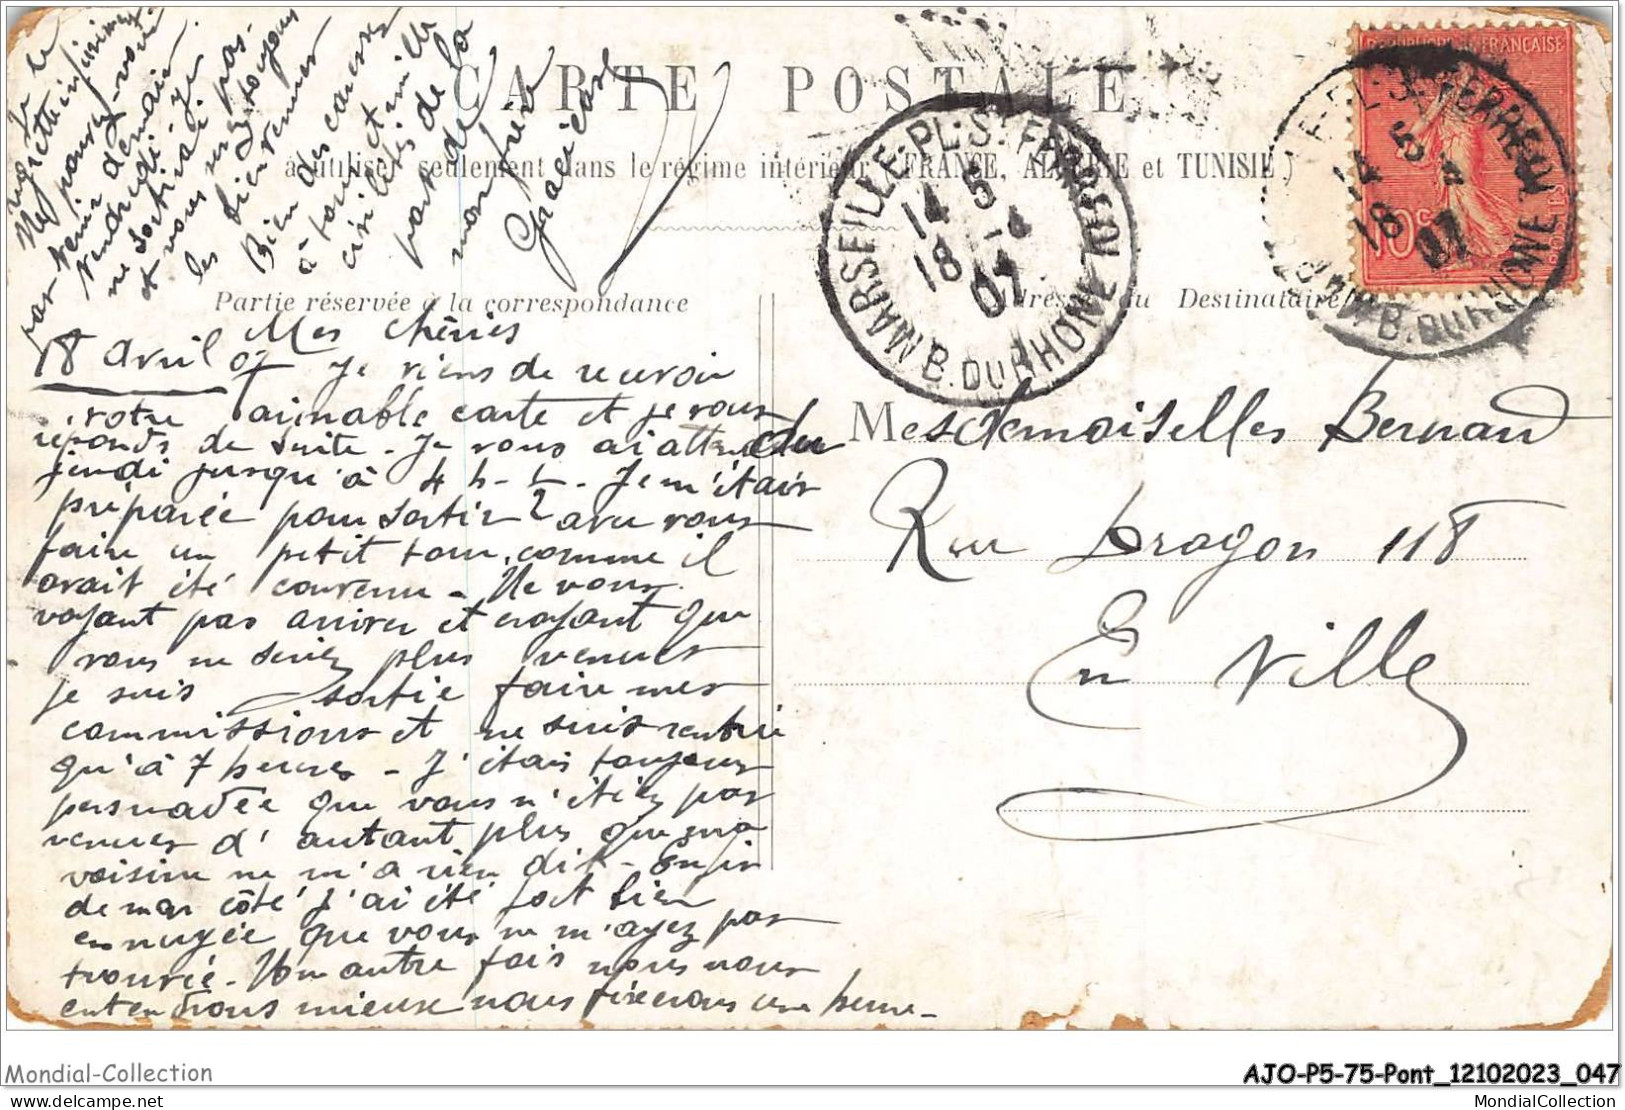 CARTE POSTALE
à utiliser seulement dans le régime intérieur (FRANCE, ALGÉRIE et TUNISIE)
Partie réservée à la correspondance
Adresse du Destinataire
REPUBLIQUE FRANÇAISE
10c
MARSEILLE-PL-ST FERREOL
14 5
18 -4
07
B. DU RHONE
14 5
18 -4
07
B. DU RHONE
Mesdemoiselles Bernard
Rue Dragon 118
En Ville
Mes chéries
18 avril 07 Je viens de recevoir
votre aimable carte et je vous
réponds de suite. Je vous ai attendu
jeudi jusqu'à 4 h. ½. Je m'étais
préparée pour sortir avec vous
faire un petit tour, comme il
avait été convenu. Ne vous
voyant pas arriver et croyant que
vous ne seriez plus venues
je suis sortie faire mes
commissions et ne suis rentrée
qu'à 7 heures. J'étais toujours
persuadée que vous n'étiez pas
venues d'autant plus que ma
voisine ne m'a rien dit. Enfin
de mon côté j'ai été fort bien
ennuyée que vous ne m'ayez pas
trouvée. Une autre fois nous nous
entendrons mieux nous fixerons une heure.
Je
regrette infiniment
de ne pouvoir vous
par venir demain
vendredi. Je
ne sortirai pas
et vous serez toujours
les bienvenues
Bien des caresses
à tous et mille
civilités de la
part de
mon frère
Gracieuse
Mondial-Collection
AJO-P5-75-Pont_12102023_047
www.delcampe.net
MondialCollection